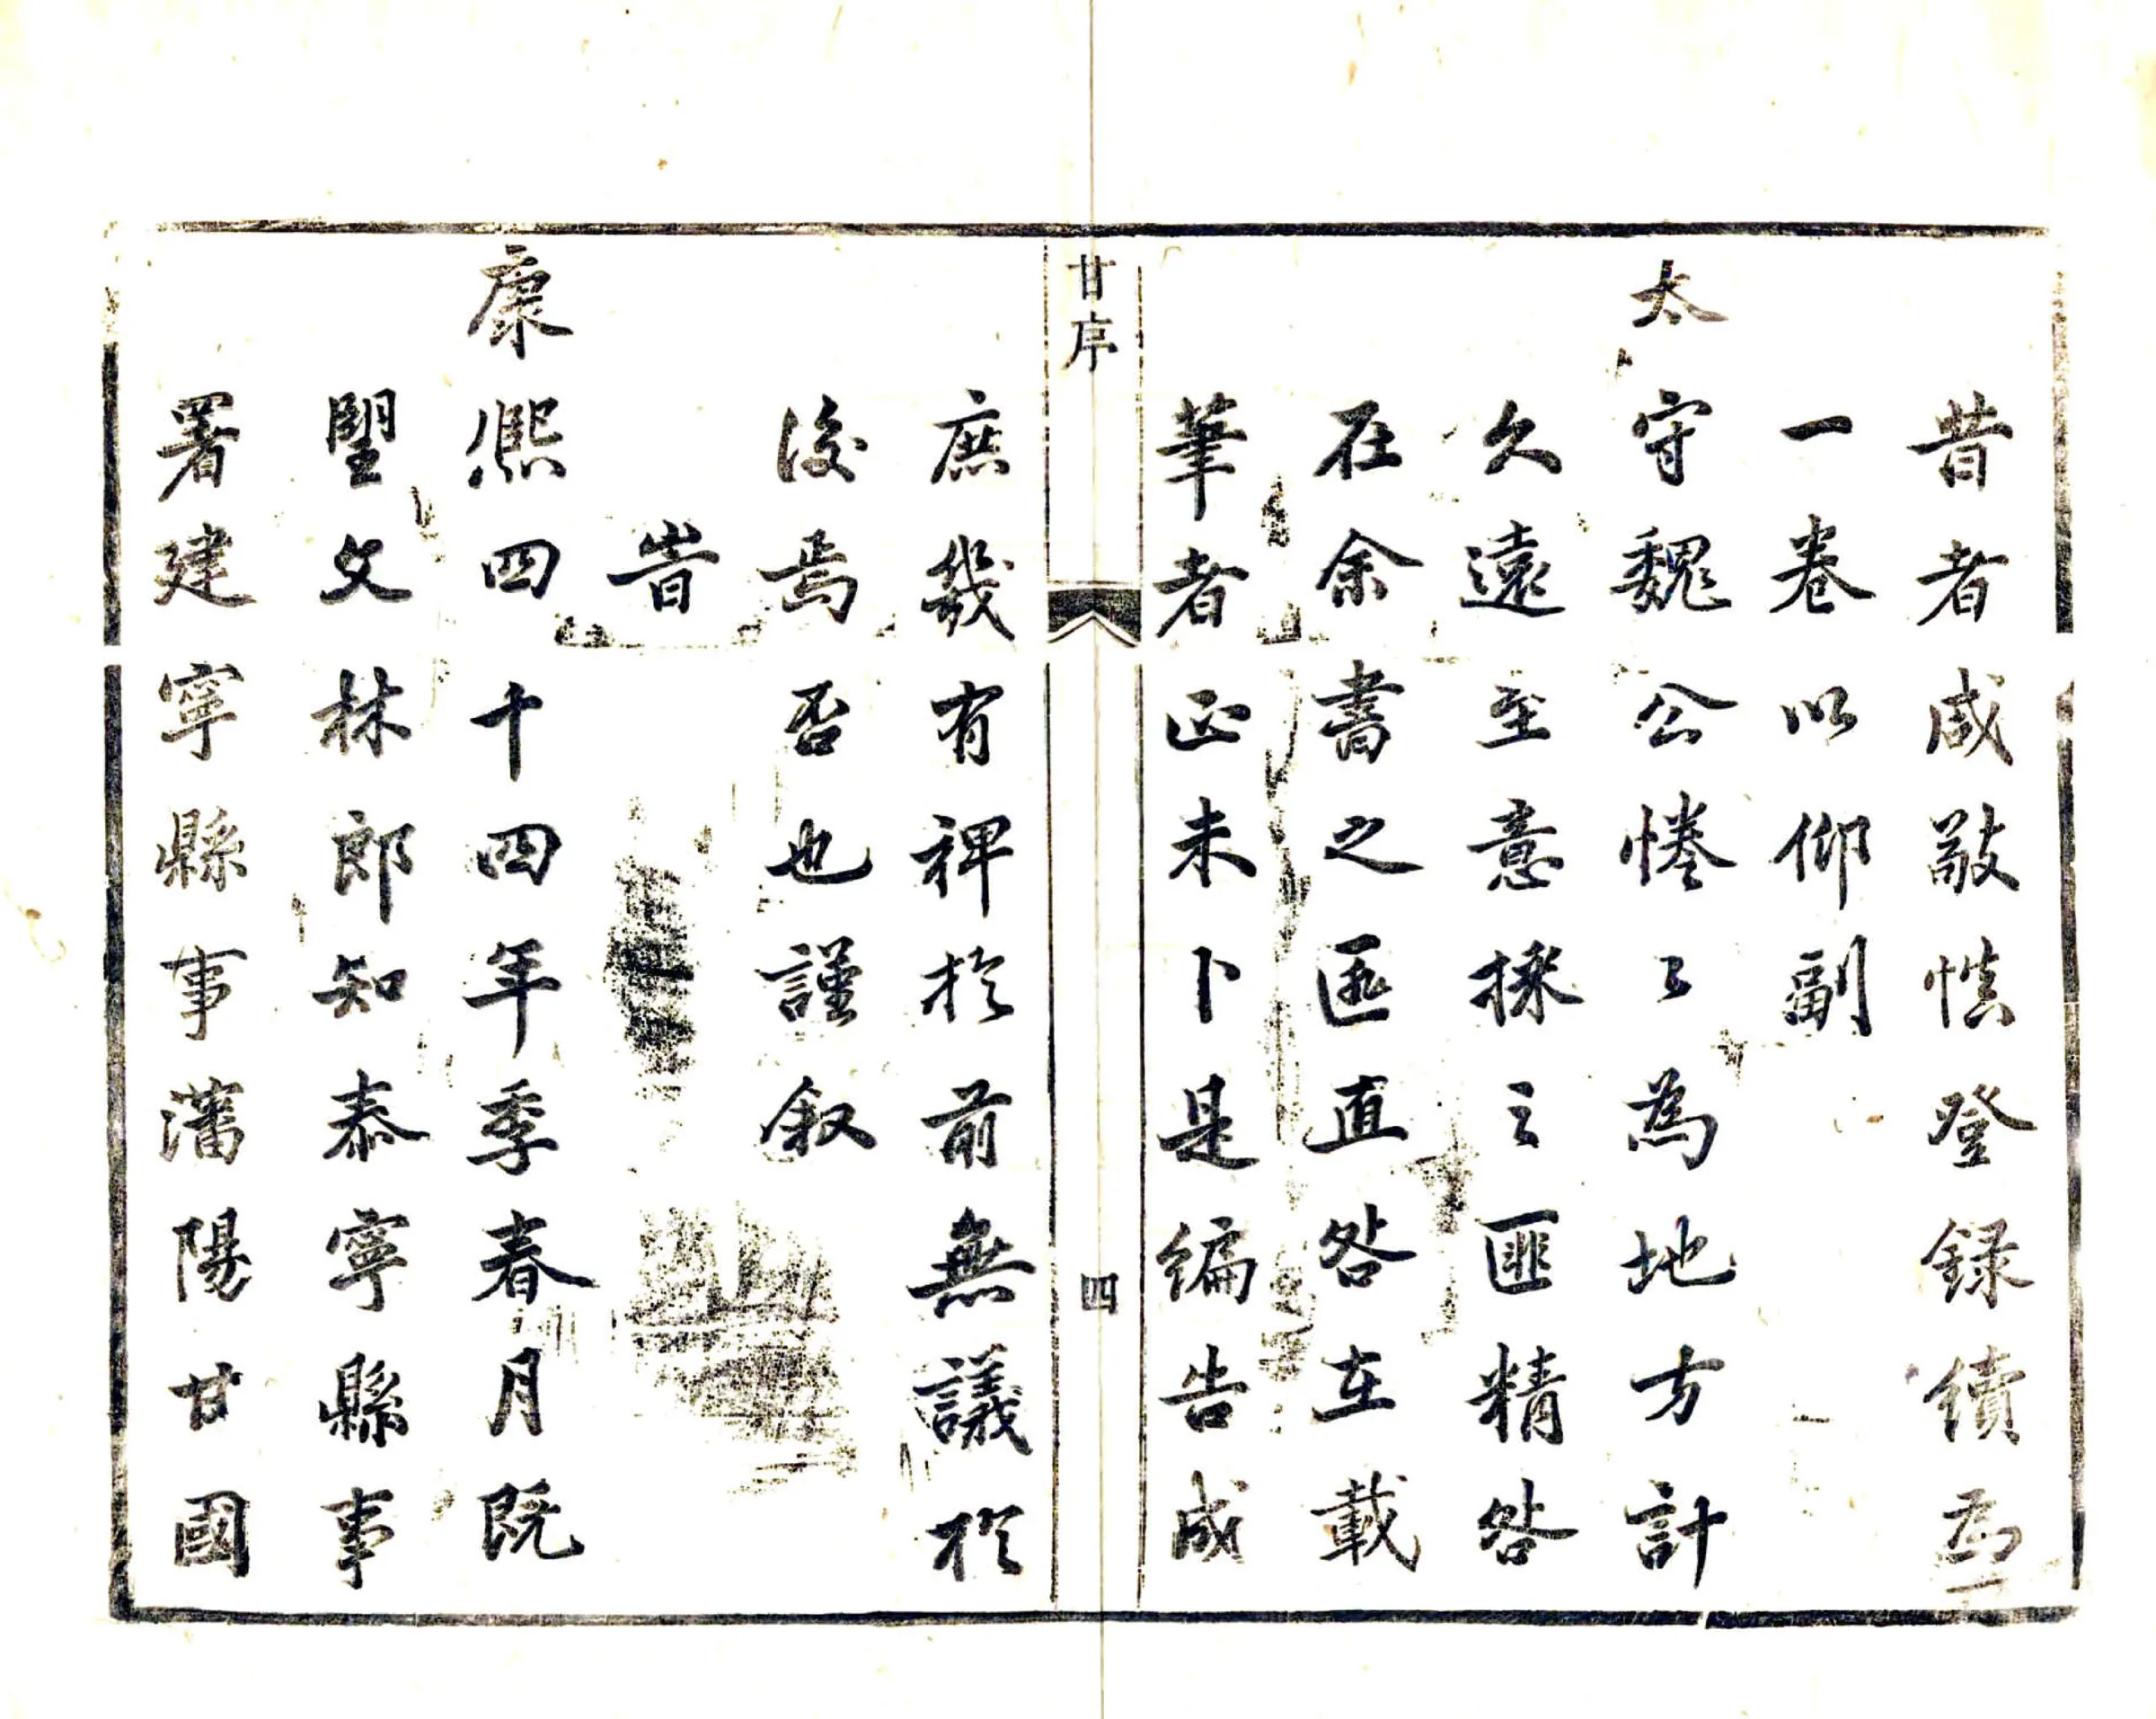 昔者咸敬慎登録續為
一卷以仰副
太守魏公惓〻為地方計
久遠至意採之匪精咎
在余書之匪直咎在載
筆者正未卜是編告成
甘序
四
庶幾有裨於前無議於
後焉否也謹叙
旹
康熙四十四年季春月既
朢文林郎知泰寧縣事
署建寧縣事瀋陽甘國